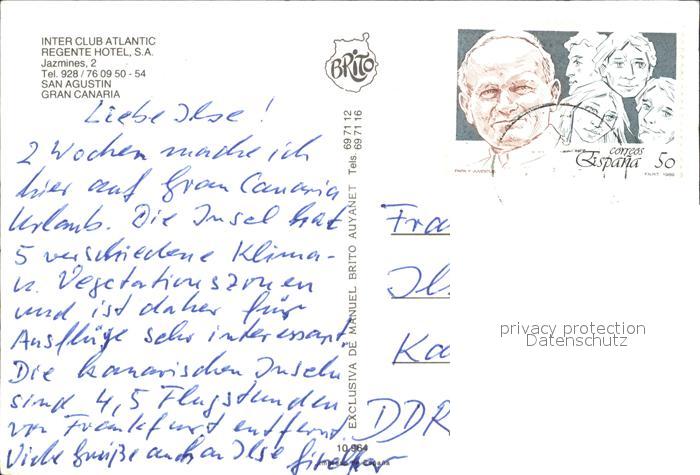 INTER CLUB ATLANTIC
REGENTE HOTEL, S.A.
Jazmines, 2
Tel. 928 / 76 09 50 - 54
SAN AGUSTIN
GRAN CANARIA
BRITO
Liebe Ilse!
2 Wochen mache ich
hier auf Gran Canaria
Urlaub. Die Insel hat
5 verschiedene Klima-
u. Vegetationszonen
und ist daher für
Ausflüge sehr interessant.
Die kanarischen Inseln
sind 4,5 Flugstunden
von Frankfurt entfernt.
Viele Grüße auch an Ilse
EXCLUSIVA DE MANUEL BRITO AUYANET Tels. 69 71 12
69 71 16
10.964
PAPA Y JUVENTUD
correos
España 50
F.N.M.T. 1989
Fra
Ils
Ka
DDR
privacy protection
Datenschutz